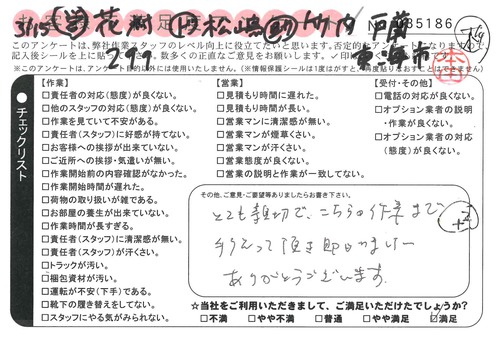 3/15 花
松嶋
No 085186
299
東海市
このアンケートは、弊社作業スタッフのレベル向上に役立てたいと思います。否定的なアンケートになりますので
※このアンケートは、アンケート目的以外には使用いたしません。(※情報保護シールは1度はがすと、再度貼りなおすことはできません)
チェックリスト
【作業】
□責任者の対応(態度)が良くない。
□他のスタッフの対応(態度)が良くない。
□作業を見ていて不安がある。
□責任者(スタッフ)に好感が持てない。
□お客様への挨拶が出来ていない。
□ご近所への挨拶・気遣いが無い。
□作業開始前の内容確認がなかった。
□作業開始時間が遅れた。
□荷物の取り扱いが雑である。
□お部屋の養生が出来ていない。
□作業時間が長すぎる。
□責任者(スタッフ)に清潔感が無い。
□責任者(スタッフ)が汗くさい。
□トラックが汚い。
□梱包資材が汚い。
□運転が不安(下手)である。
□靴下の履き替えをしてない。
□スタッフにやる気がみられない。
【営業】
□見積もり時間に遅れた。
□見積もり時間が長い。
□営業マンに清潔感が無い。
□営業マンが煙草くさい。
□営業マンが汗くさい。
□営業態度が良くない。
□営業の説明と作業が一致してない。
【受付・その他】
□電話の対応が良くない。
□オプション業者の説明
・作業が良くない。
□オプション業者の対応
(態度)が良くない。
その他、ご意見・ご要望等ありましたらお書き下さい。
とても親切で、こちらの作業まで
手伝って頂き助かりました
ありがとうございます。
+2
☆当社をご利用いただきまして、ご満足いただけたでしょうか?
□不満 □やや不満 □普通 □やや満足 ☑満足